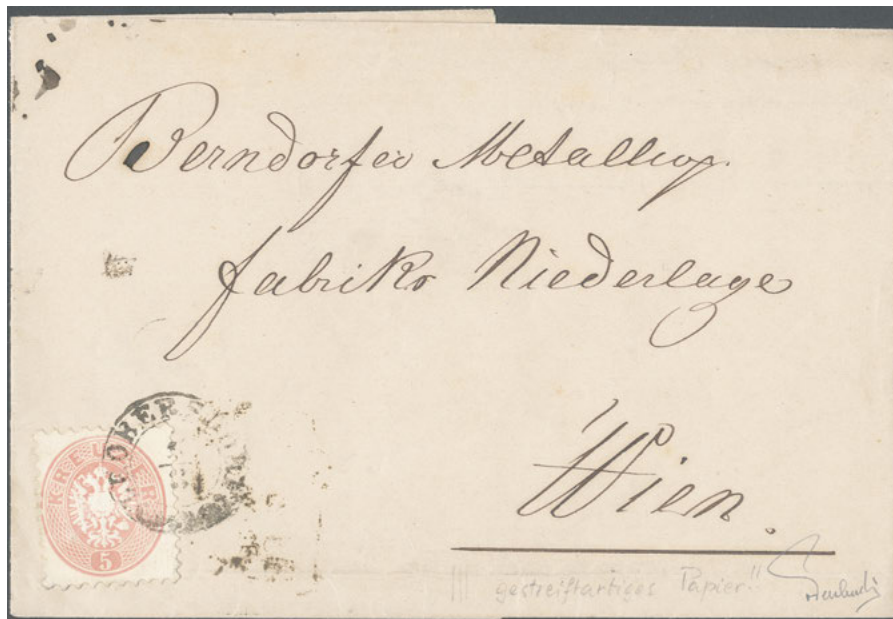 Berndorfer Metallwa.
fabriks Niederlage
Wien.
KREUZER
5
|||| gestreiftartiges Papier!!